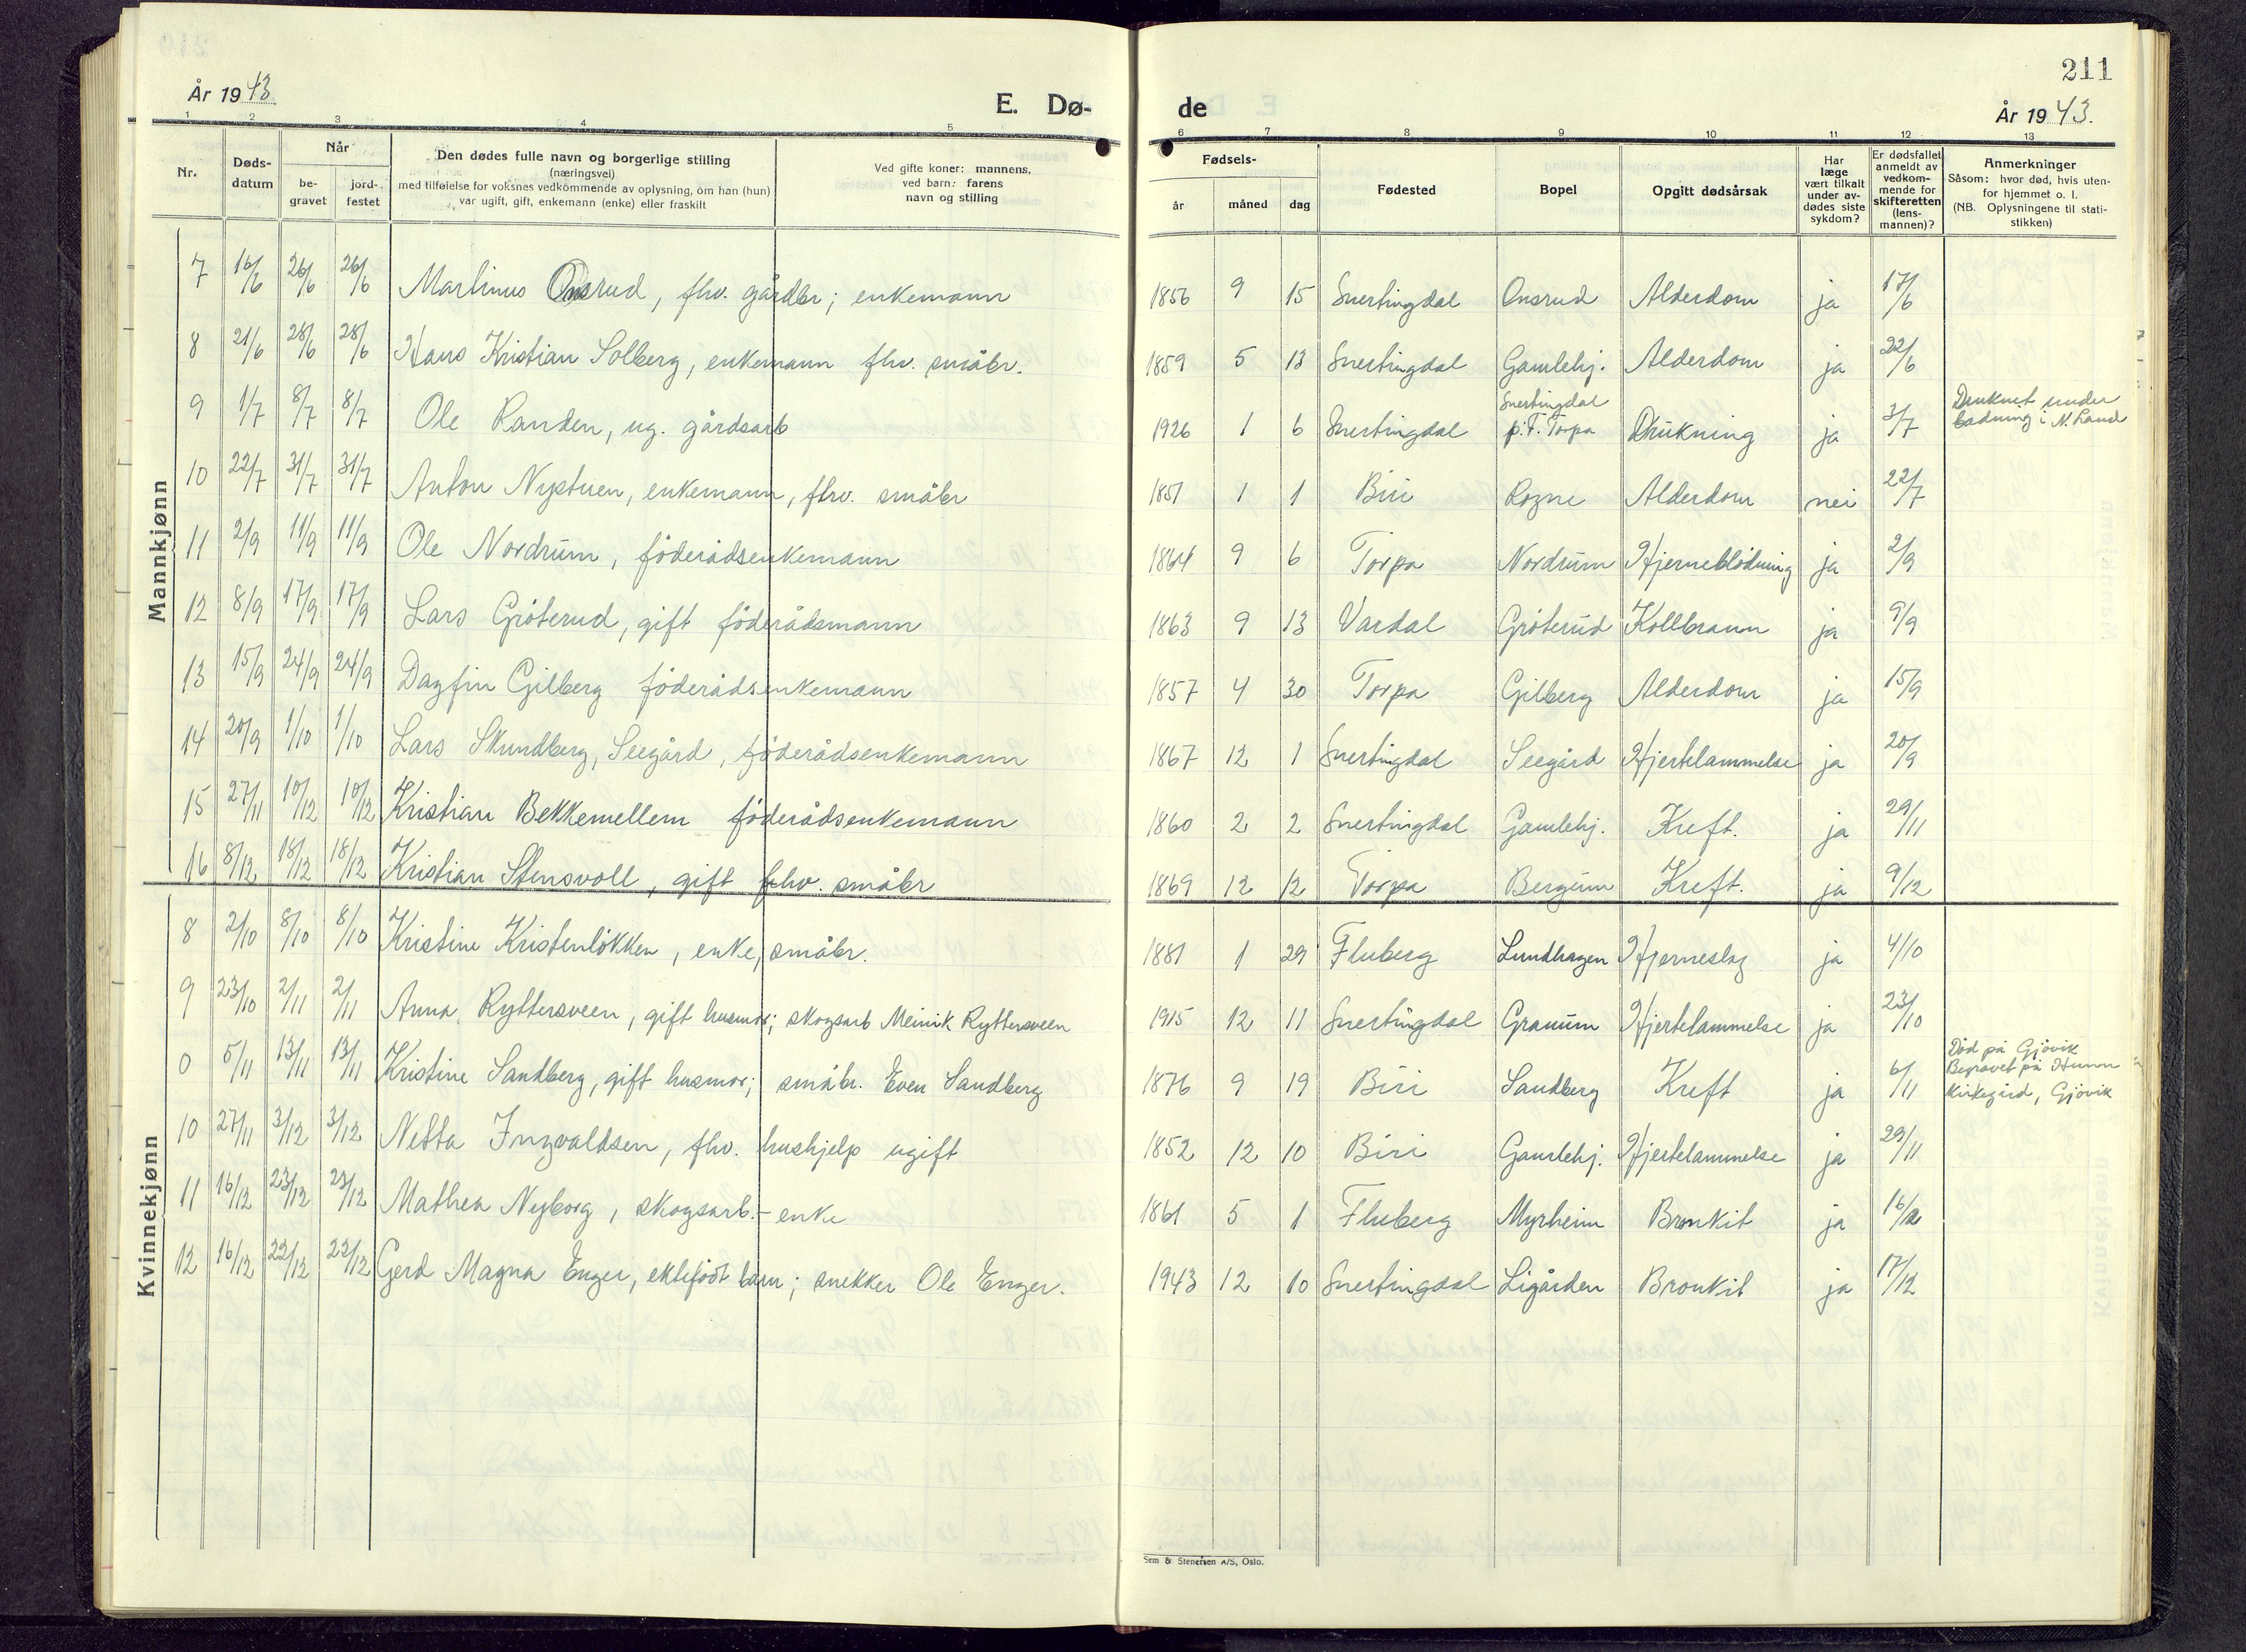 211
År 1943
E. Dø-
de
År 1943.
1 2 3 4 5 6 7 8 9 10 11 12 13
Nr.
Døds-
datum
Når
be-
gravet
jord-
festet
Den dødes fulle navn og borgerlige stilling
(næringsvei)
med tilføielse for voksnes vedkommende av oplysning, om han (hun)
var ugift, gift, enkemann (enke) eller fraskilt
Ved gifte koner: mannens,
ved barn: farens
navn og stilling
Fødsels-
år måned dag
Fødested
Bopel
Opgitt dødsårsak
Har
læge
vært tilkalt
under av-
dødes siste
sykdom?
Er dødsfallet
anmeldt av
vedkom-
mende for
skifteretten
(lens-
mannen)?
Anmerkninger
Såsom: hvor død, hvis uten-
for hjemmet o. l.
(NB. Oplysningene til stati-
stikken)
Mannkjønn
7 16/6 26/6 26/6 Martinus Onsrud, fhv. gårdbr; enkemann 1856 9 15 Snertingdal Onsrud Alderdom ja 17/6
8 21/6 28/6 28/6 Hans Kristian Solberg, enkemann fhv. småbr. 1859 5 13 Snertingdal Gamlehj. Alderdom ja 22/6
9 1/7 8/7 8/7 Ole Randen, ug. gårdsarb 1926 1 6 Snertingdal Snertingdal p.t. Torpa Drukning ja 3/7 Druknet under
badning i N. Land
10 22/7 31/7 31/7 Anton Nystuen, enkemann, fhv. småbr 1851 1 1 Biri Rogne Alderdom nei 22/7
11 2/9 11/9 11/9 Ole Nordrum, föderådsenkemann 1864 9 6 Torpa Nordrum Hjerneblödning ja 2/9
12 8/9 17/9 17/9 Lars Gröterud, gift föderådsmann 1863 9 13 Vardal Gröterud Kollbrann ja 9/9
13 15/9 24/9 24/9 Dagfin Gilberg föderådsenkemann 1857 4 30 Torpa Gilberg Alderdom ja 15/9
14 20/9 1/10 1/10 Lars Skundberg, Seegård, föderådsenkemann 1867 12 1 Snertingdal Seegård Hjertelammelse ja 20/9
15 27/11 10/12 10/12 Kristian Bekkemellem föderådsenkemann 1860 2 2 Snertingdal Gamlehj. Kreft. ja 29/11
16 8/12 18/12 18/12 Kristian Stensvoll, gift fhv. småbr 1869 12 12 Torpa Bergum Kreft. ja 9/12
Kvinnekjønn
8 2/10 8/10 8/10 Kristine Kristenlökken, enke, småbr. 1881 1 29 Fluberg Lundhagen Hjerneslag ja 4/10
9 23/10 2/11 2/11 Anna Ryttersveen, gift husmor; skogsarb Meinik Ryttersveen 1915 12 11 Snertingdal Granum Hjertelammelse ja 23/10
0 5/11 13/11 13/11 Kristine Sandberg, gift husmor; småbr. Even Sandberg 1876 9 19 Biri Sandberg Kreft ja 6/11 Död på Gjövik
Begravet på Hunn
Kirkegård, Gjövik
10 27/11 3/12 3/12 Netta Ingvaldsen, fhv. hushjelp ugift 1852 12 10 Biri Gamlehj. Hjertelammelse ja 29/11
11 16/12 23/12 23/12 Mathea Nyborg, skogsarb.- enke 1861 5 1 Fluberg Myrheim Bronkit ja 16/12
12 16/12 22/12 22/12 Gerd Magna Enger, ektefödt barn; snekker Ole Enger. 1943 12 10 Snertingdal Ligården Bronkit ja 17/12
Sem & Stenersen A/S, Oslo.